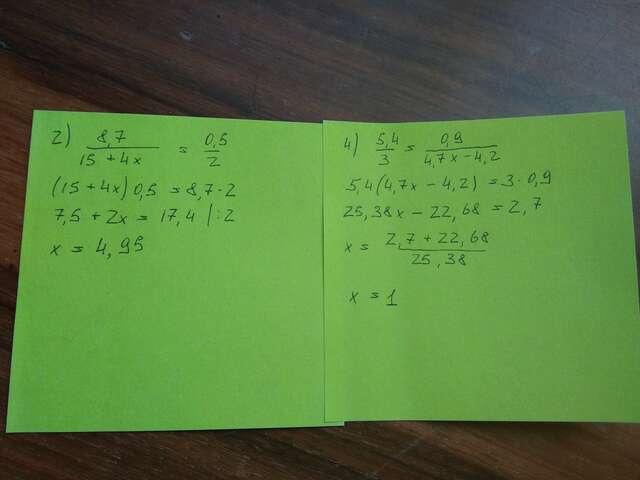 2) 8,7 / (15 + 4x) = 0,5 / 2
(15 + 4x) 0,5 = 8,7 · 2
7,5 + 2x = 17,4 | : 2
x = 4,95
4) 5,4 / 3 = 0,9 / (4,7x - 4,2)
5,4(4,7x - 4,2) = 3 · 0,9
25,38x - 22,68 = 2,7
x = (2,7 + 22,68) / 25,38
x = 1